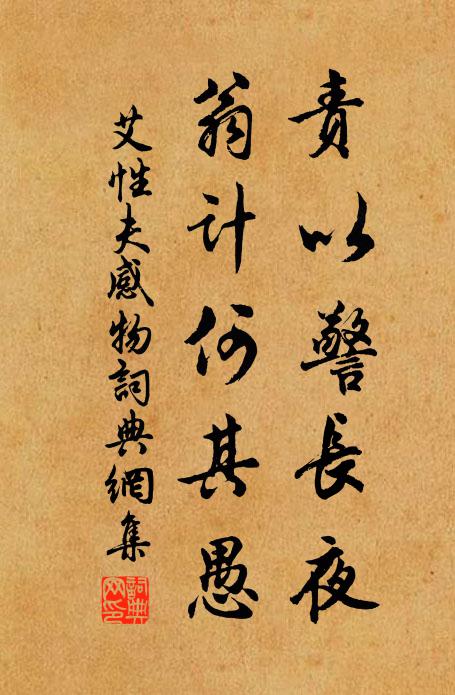 責以警長夜
翁計何其愚
艾性夫感物詞典網集
詞典網印